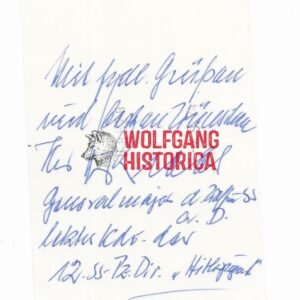 Mit frdl. Grüßen
und besten Wünschen
Ihr
WOLFGANG
HISTORICA
Generalmajor d. Waffen-SS
a. D.
letzter Kdr. der
12. SS-Pz. Div. „Hitlerjugend"